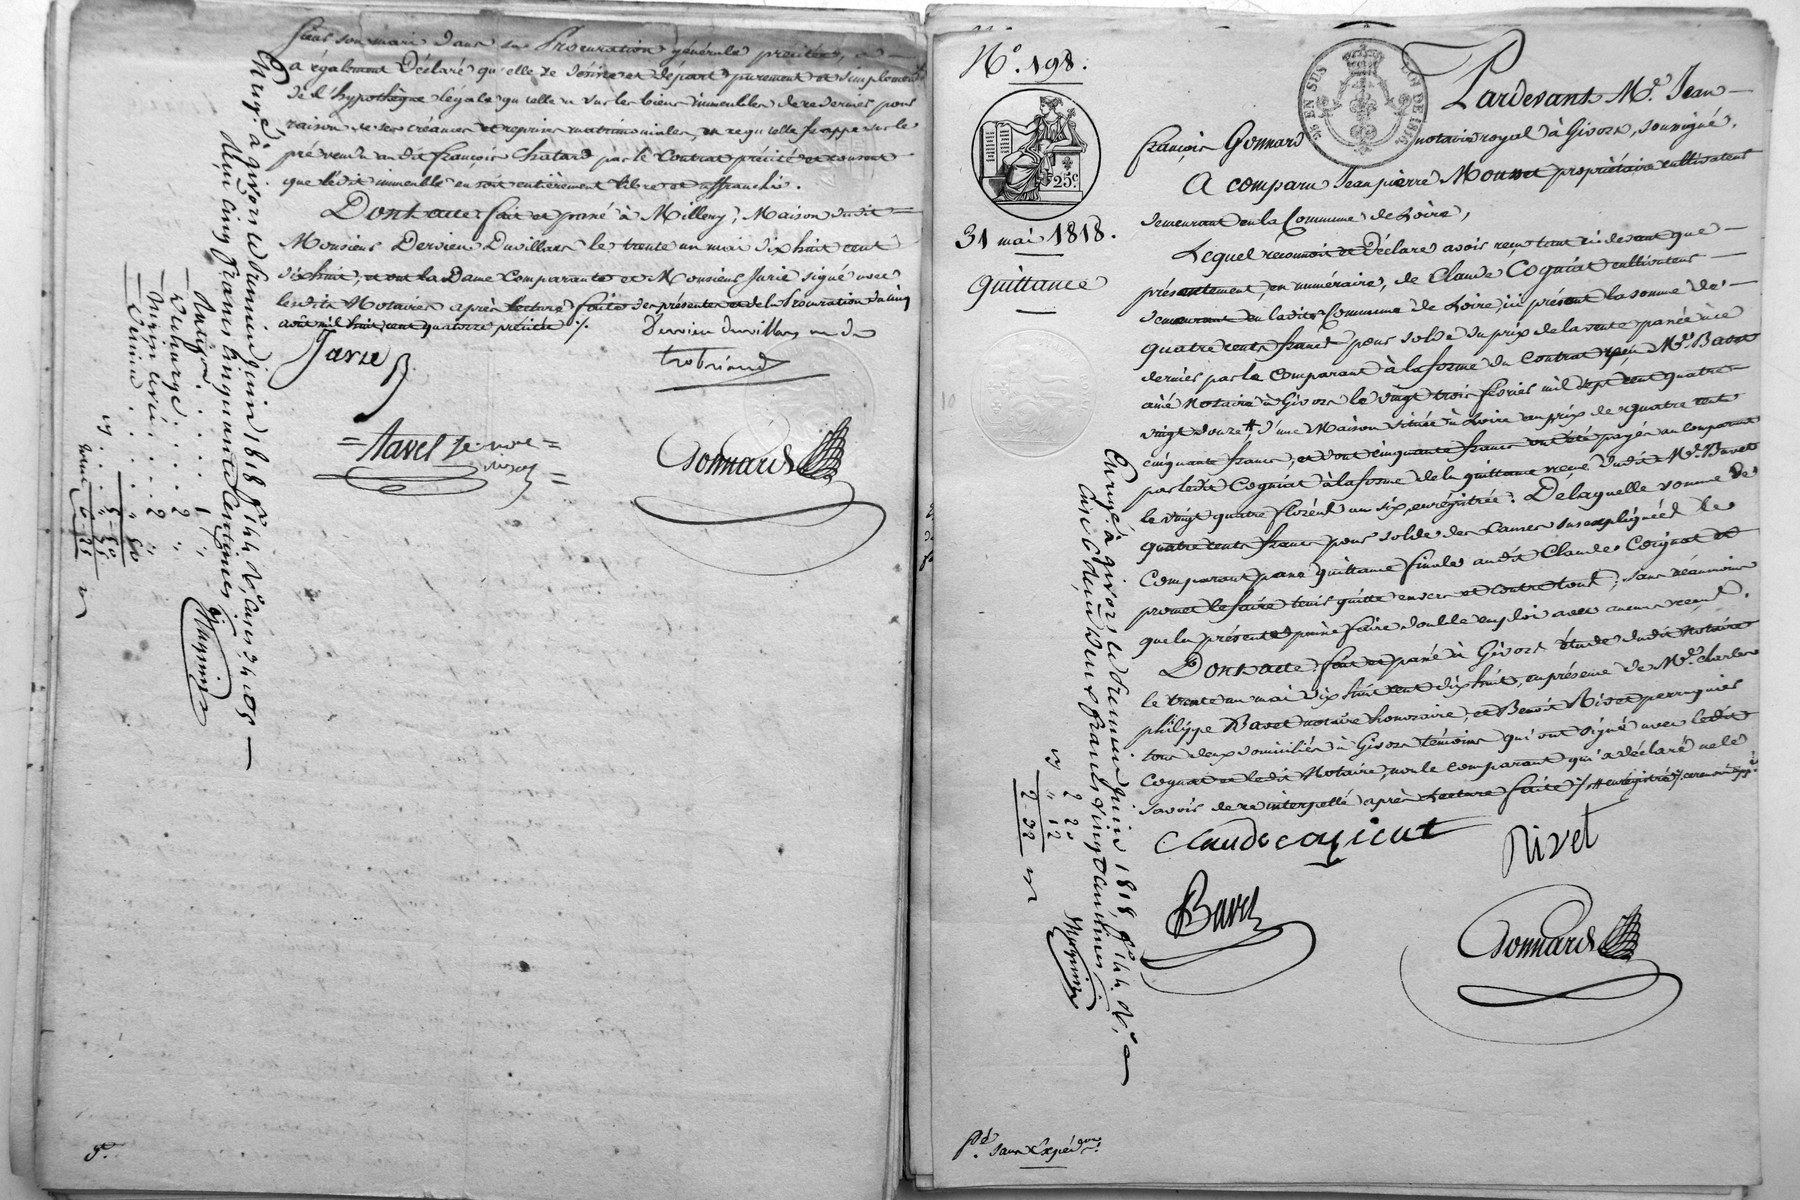 sieur son mari dans sa Procuration générale précitée, a
a également Déclaré qu'elle se désiste et départ purement et simplement
de l'hypothèque légale qu'elle a sur les biens immeubles de ce dernier pour
raison de ses créances et reprises matrimoniales, en ce qu'elle frappe sur le
pré vendu au dit françois Chatard par le Contrat précité et consent
que ledit immeuble en soit entièrement libre et affranchi.
Dont acte fait et passé à Milleny, Maison dudit
Monsieur Dervieu Duvillars le trente un mai dix huit cent
dix huit, et ont la Dame Comparante et Monsieur Jarie signé avec
lesdits Notaires après lecture faite des présentes et de la Procuration du cinq
août mil huit cent quatorze précitée ./.
Dervieu duvillars née de
Jarie
trobriand
Navel
Gonnard
Enrgé. à givors le premier juin 1818 f° 144 v° cases 3 4 et 5
reçu cinq francs cinquante centimes
Nugues
5.
N°. 198.
25c
31 mai 1818.
Quittance
EN SUS
LOI DE 1816
Pardevant Me. Jean
françois Gonnard notaire royal à Givors, soussigné.
A comparu Jean pierre Mounet propriétaire cultivateur
demeurant en la Commune de Loire,
Lequel reconnoit et Déclare avoir reçu tant ci devant que
présentement, en numéraire, de Claude Cogniat cultivateur
demeurant en ladite Commune de Loire, ici présent la somme de
quatre cents francs pour solde du prix de la vente passée à ce
dernier par le Comparant à la forme du Contrat reçu Me. Bavet
ainé Notaire à Givors le vingt trois février mil sept cent quatre
vingt douze #, d'une Maison située à Loire au prix de quatre cent
cinquante francs, et dont cinquante francs ont été payés au Comparant
par ledit Cogniat à la forme de la quittance reçue dudit Me. Bavet
le vingt quatre floréal an six, enregistrée. De laquelle somme de
quatre cents francs pour solde des causes susexpliquées le
Comparant passe quittance finale au dit Claude Cogniat et
promet le faire tenir quitte envers et contre tous; sans néanmoins
que la présente puisse faire double emploi avec aucuns reçus.
Dont acte, fait et passé à Givors étude dudit Notaire
le trente un mai dix huit cent dix huit, en présence de Me. Charles
philippe Bavet notaire honoraire, et Benoit Rivet perruquier
tous deux domiciliés à Givors témoins qui ont signé avec ledit
Cogniat et ledit Notaire, non le comparant qui a déclaré ne le
savoir de ce interpellé après lecture faite ./. # enregistré
Claude cogniat
Rivet
Bavet
Gonnard
Enrgé. à givors le premier juin 1818, f° 144. v°.
case 6 reçu deux francs vingt centimes
2 20
12
2 32
Nugues